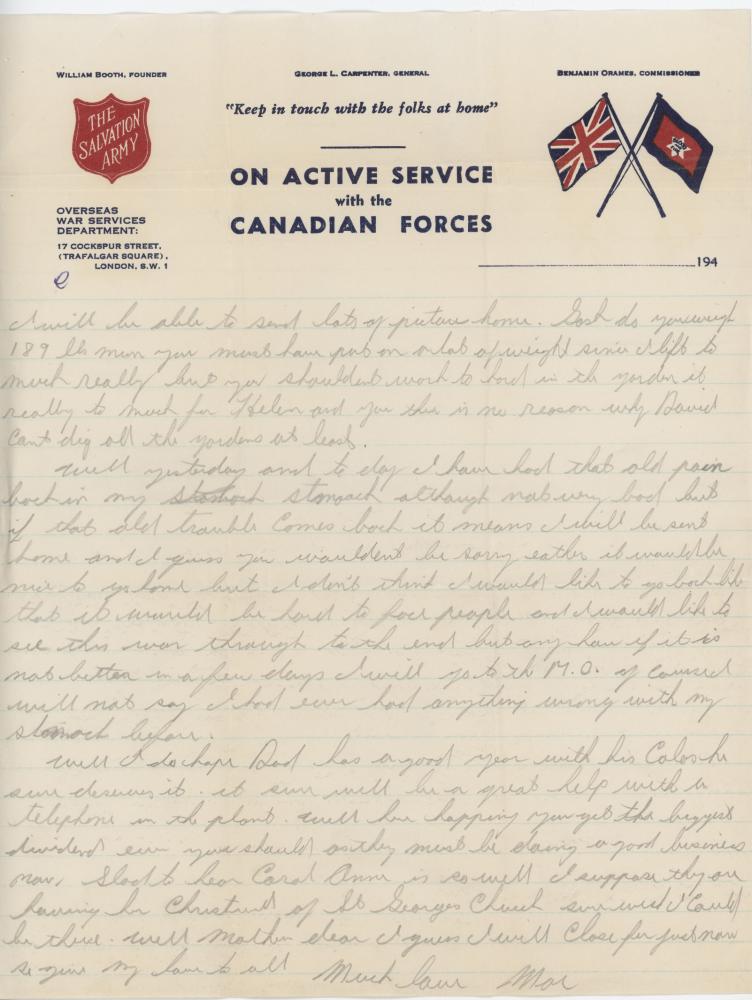 WILLIAM BOOTH, FOUNDER
GEORGE L. CARPENTER, GENERAL
BENJAMIN ORAMES, COMMISSIONER
THE
SALVATION
ARMY
"Keep in touch with the folks at home"
ON ACTIVE SERVICE
with the
CANADIAN FORCES
OVERSEAS
WAR SERVICES
DEPARTMENT:
17 COCKSPUR STREET,
(TRAFALGAR SQUARE),
LONDON, S.W. 1
194
I will be able to send lots of picture home. Gosh do you weigh
189 lbs mum you must have put on a lot of weight since I left to
much really but you shouldent work to hard in the garden it
really to much for Helen and you ther is no reason why David
cant dig all the gardens at least.
Well yesterday and to day I have had that old pain
back in my stomach stomach although not very bad but
if that old trouble comes back it means I will be sent
home and I guess you wouldent be sorry eather it would be
nice to go home but I don't think I would like to go back like
that it would be hard to face people and I would like to
see this war through to the end but any how if it is
not better in a few days I will go to the M.O. of course I
will not say I had ever had anything wrong with my
stomach before.
Well I do hope Dad has a good year with his he
sure deserves it. it sure will be a great help with a
telephone in the plant. Well her happing you get the biggest
dividend ever you should as they must be doing a good business
now. Glad to hear Carol Anne is so well I suppose they are
having her at St Georges Church sure wish I could
be there. Well Mother dear I guess I will close for just now
so give my love to all Much love Mac